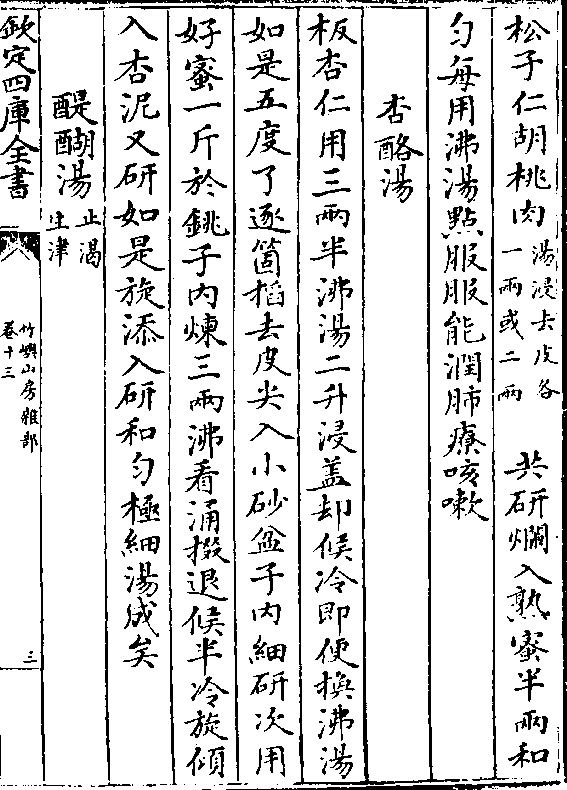 松子仁胡桃肉湯浸去皮各一兩或二兩共研爛入熟蜜半兩和
勻每用沸湯點服服能潤肺療咳嗽
杏酪湯
板杏仁用三兩半沸湯二升浸盖却候冷即便換沸湯
如是五度了逐箇掐去皮尖入小砂盆子内細研次用
好蜜一斤於銚子内煉三兩沸看涌掇退候半冷旋傾
入杏泥又研如是旋添入研和勻極細湯成矣
醍醐湯止渴生津
欽定四庫全書
竹嶼山房雜部
卷十三
三